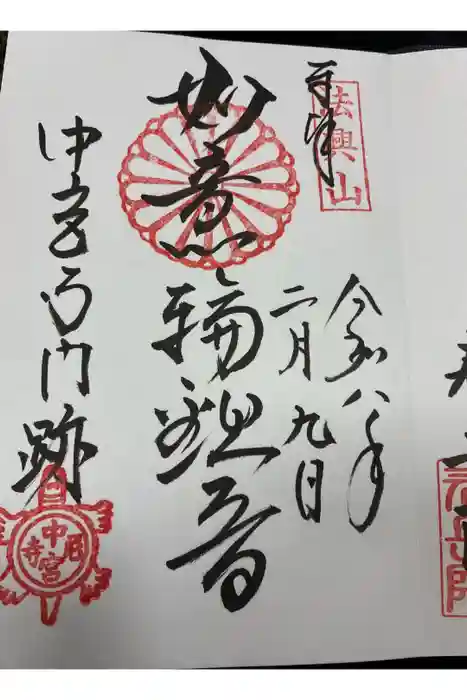 奉拝
法興山
令和八年
二月九日
如意輪観音
中宮寺門跡
中宮寺